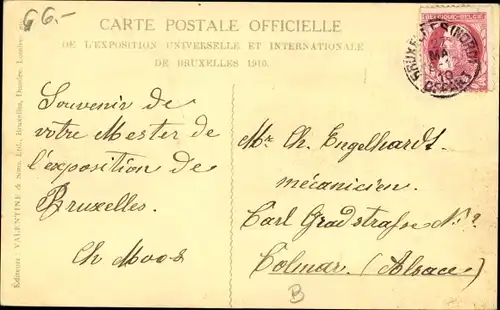 66.-
CARTE POSTALE OFFICIELLE
DE L'EXPOSITION UNIVERSELLE ET INTERNATIONALE
DE BRUXELLES 1910.
BELGIQUE-BELGIË
BRUXELLES (NORD)
MA
10
DÉPART
Souvenir de
votre Mester de
l'exposition de
Bruxelles.
Ch Moos
Mr Ch. Engelhardt.
mécanicien.
Carl Gradstrafse
Colmar. (Alsace)
B
Editeurs: VALENTINE & Sons, Ltd., Bruxelles, Dundee, Londres